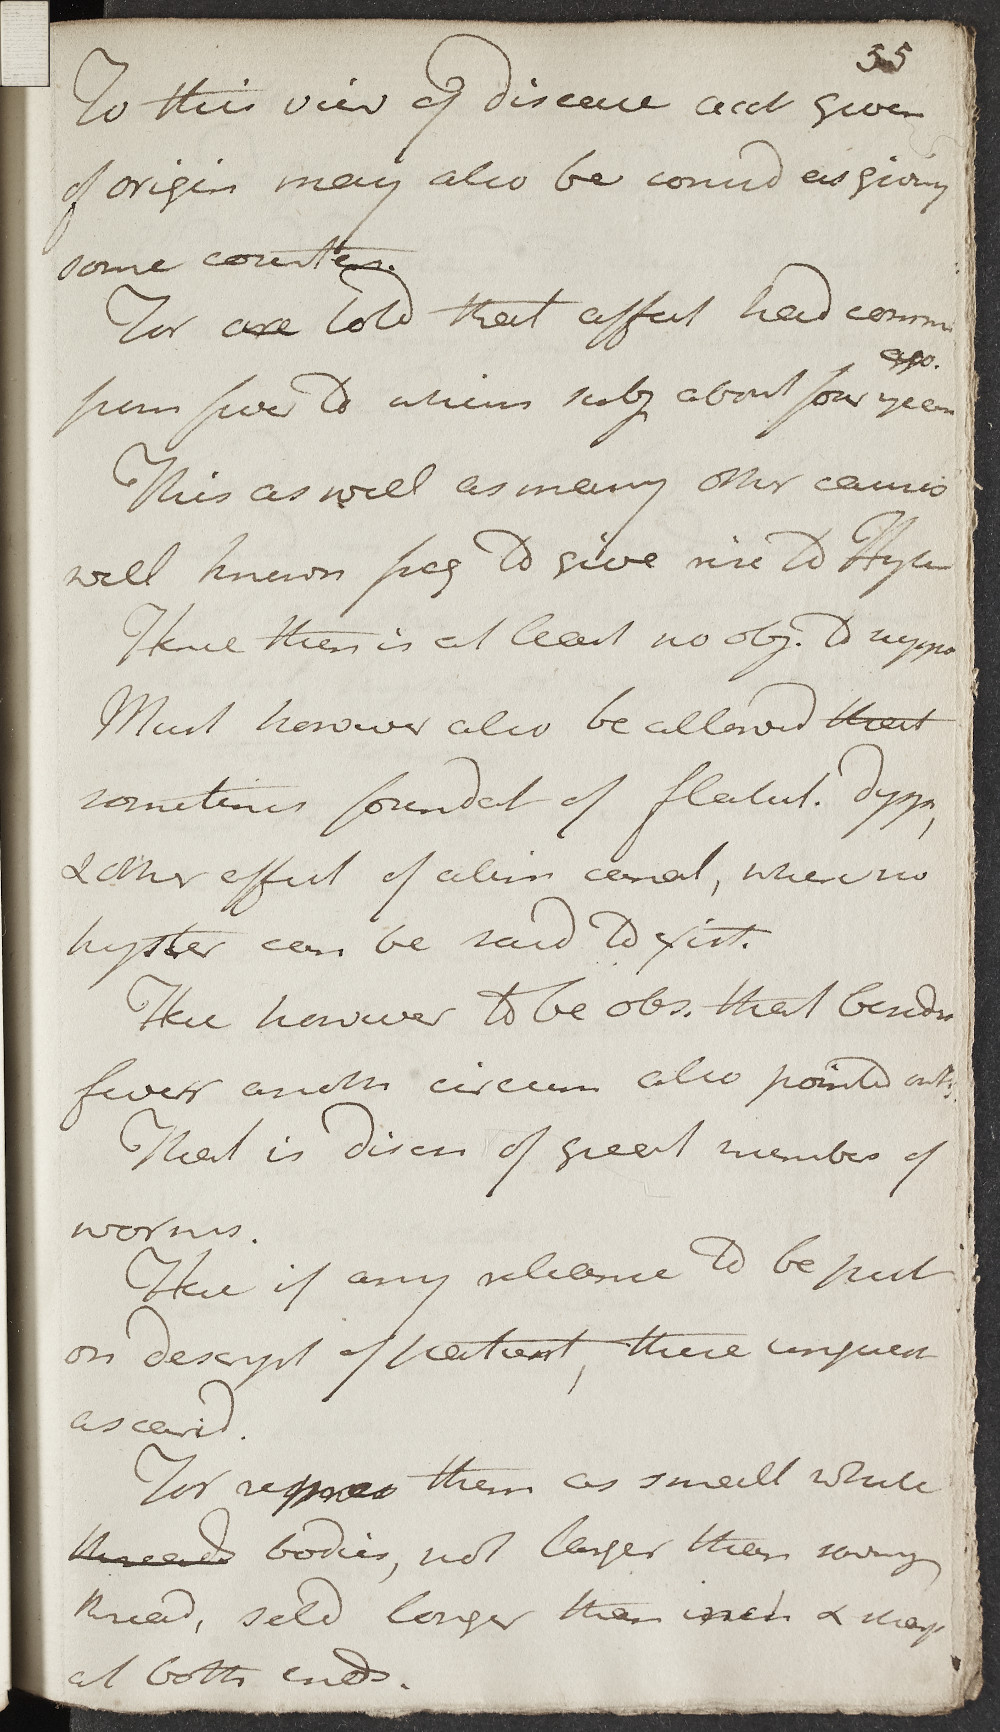 55
To this view of disease acct given
of origin may also be considd as giving
some counten.
For are told that affect head comm
ago.
from fever to which subj about four years
This as well as many other causes
well known freq to give rise to Hyster
Hence then is at least no obj. to suppo
Must however also be allowed that
sometimes foundat of flatul. dysp,
& other affect of alim canal, where no
hyster can be said to exist.
Here however to be obs. that besides
fever anothr circum also pointed out
That is disch of great number of
worms.
Here if any reliance to be put
on descript of patient, these unquest
ascarid.
For repres them as small white
threads bodies, not larger than sewing
thread, seld longer than inch & sharp
at both ends.